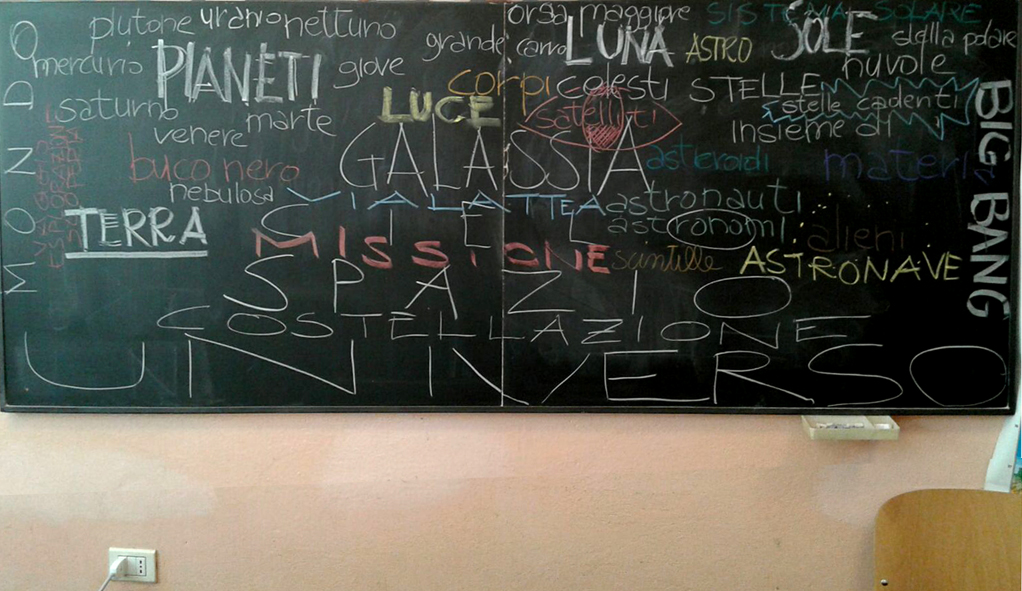 plutone urano nettuno orsa maggiore SISTEMA SOLARE
mercurio PIANETI giove grande carro LUNA ASTRO SOLE stella polare
nuvole
corpi celesti STELLE
saturno LUCE satelliti stelle cadenti
venere marte insieme di
buco nero GALASSIA asteroidi materia
nebulosa VIA LATTEA astronauti
TERRA CIELO astronomi alieni
MISSIONE scintille ASTRONAVE
SPAZIO
COSTELLAZIONE
UNIVERSO
MONDO
BIG BANG